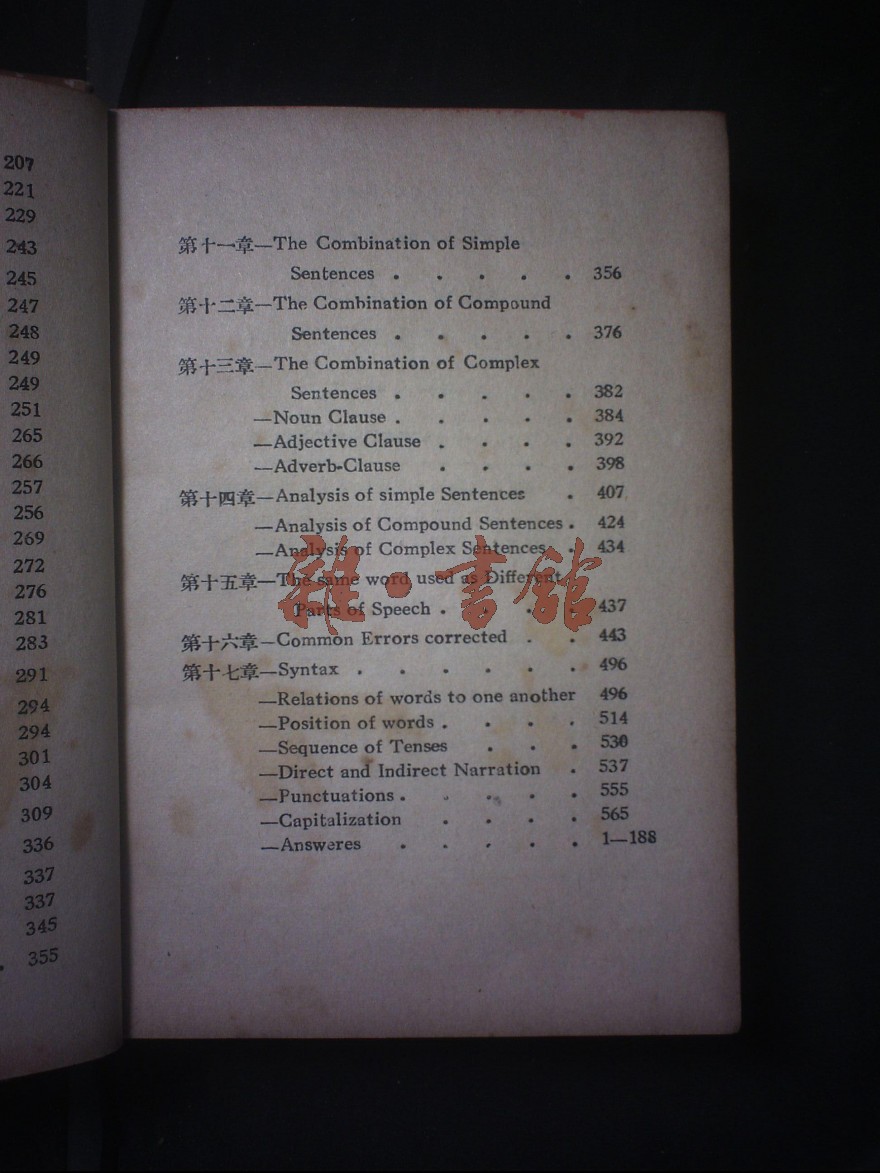 207
221
229
243
245
247
248
249
249
251
265
266
257
256
269
272
276
281
283
291
294
294
301
304
309
336
337
337
345
. 355
第十一章—The Combination of Simple
Sentences . . . . . 356
第十二章—The Combination of Compound
Sentences . . . . . 376
第十三章—The Combination of Complex
Sentences . . . . . 382
—Noun Clause . . . . . 384
—Adjective Clause . . . . 392
—Adverb-Clause . . . . 398
第十四章—Analysis of simple Sentences . 407
—Analysis of Compound Sentences . 424
—Analysis of Complex Sentences . . 434
第十五章—The same word used as Different
Parts of Speech . . . . 437
第十六章—Common Errors corrected . . 443
第十七章—Syntax . . . . . . 496
—Relations of words to one another 496
—Position of words . . . . 514
—Sequence of Tenses . . . 530
—Direct and Indirect Narration . 537
—Punctuations . . . . . 555
—Capitalization . . . . 565
—Answeres . . . . . 1—188
雜·書館